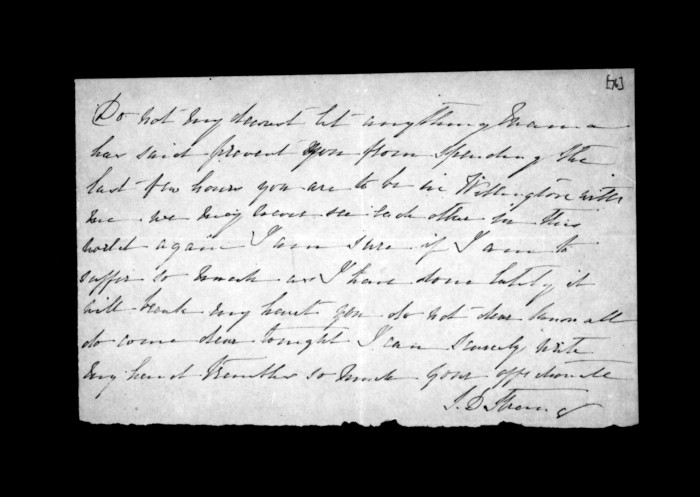 [76]
Do not my dearest let anything Mama
has said prevent you from spending the
last few hours you are to be in Wellington with
me. we may never see each other in this
world again I am sure if I am to
suffer so much as I have done lately it
will break my heart you do not dear know all
do come dear tonight I can scarcely write
my hand trembles so much your affectionate
J. D.